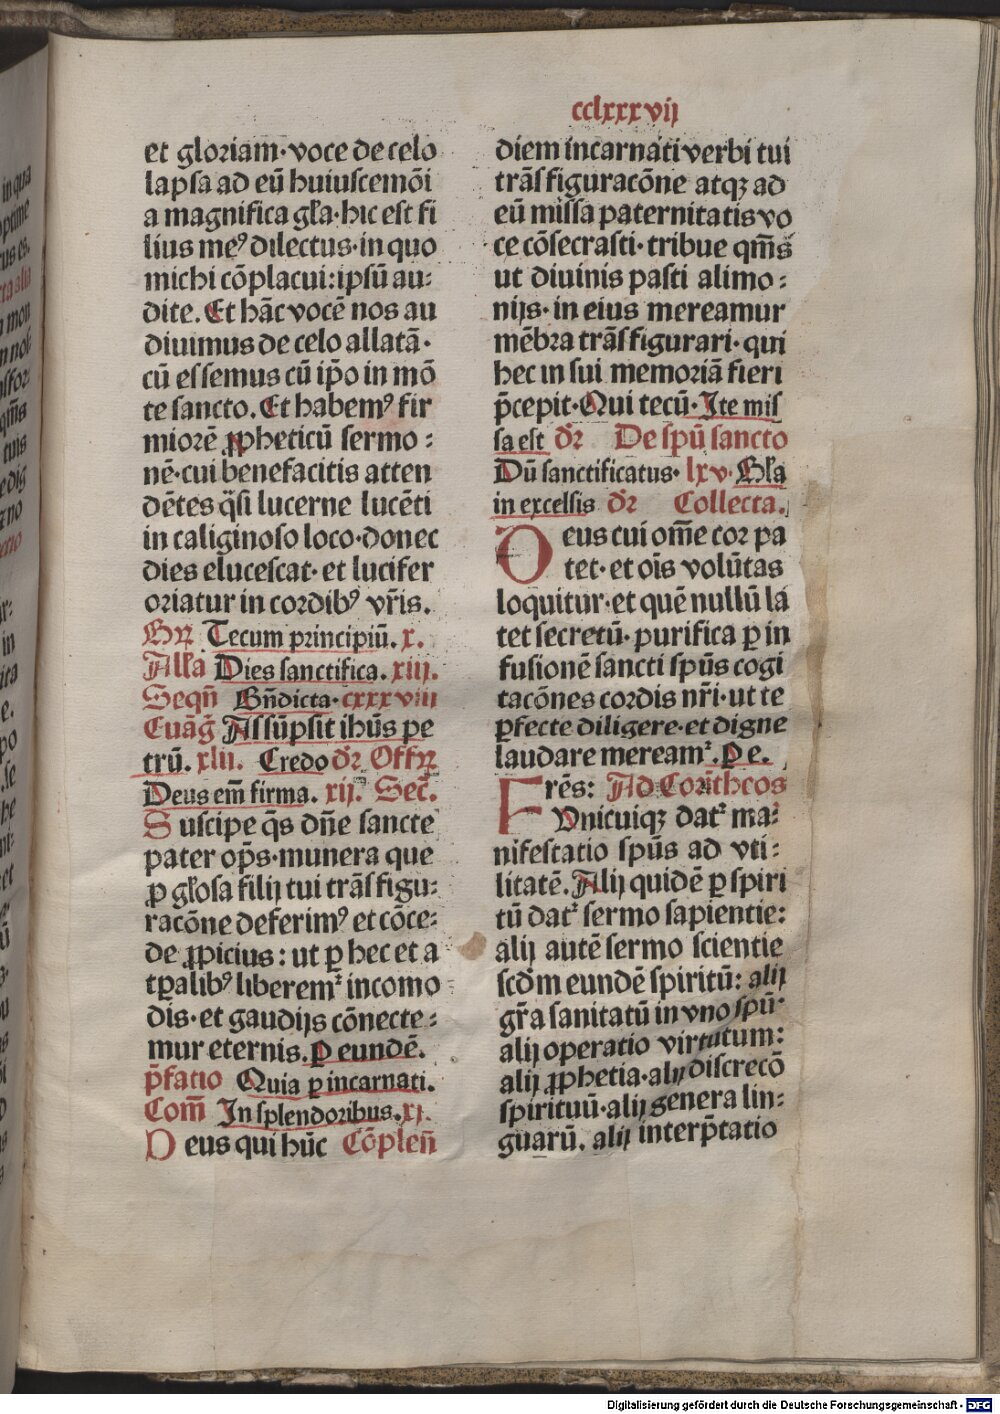 cclxxxvij
et gloriam·voce de celo
lapsa ad eū huiuscemōi
a magnifica gła·hic est fi
lius meꝰ dilectus·in quo
michi cōplacui:ipsū au:
dite. Et hāc vocē nos au
diuimus de celo allatā·
cū essemus cū ip̄o in mō
te sancto. Et habemꝰ fir
miorē ꝓpheticū sermo:
nē·cui benefacitis atten
dētes q̄si lucerne lucēti
in caliginoso loco·donec
dies elucescat·et lucifer
oriatur in cordibꝰ vr̄is.
Gꝶ Tecum principiū. x.
Alła Dies sanctifica. xiij.
Seqn̄ Bn̄dicta·cxxxviii
Euāḡ Assūpsit ihūs pe
trū. xlii. Credo dr̄ Offꝶ
Deus em̄ firma. xij. Sec̄.
Suscipe q̄s dn̄e sancte
pater op̄s·munera que
ꝓ głosa filij tui trāsfigu:
racōne deferimꝰ et cōce:
de ꝓpicius: ut ꝑ hec et a
tꝑalibꝰ liberemᷣ incomo
dis·et gaudijs cōnecte:
mur eternis. ꝑ eundē.
p̄fatio Quia ꝑ incarnati.
Com̄ In splendoribus. xj.
Deus qui hūc Cōplen̄
diem incarnati verbi tui
trāsfiguracōne atqꝫ ad
eū missa paternitatis vo
ce cōsecrasti·tribue qm̄s
ut diuinis pasti alimo:
nijs·in eius mereamur
mēbra trāsfigurari·qui
hec in sui memoriā fieri
p̄cepit·Qui tecū·Ite mis
sa est dr̄ De spū sancto
Dū sanctificatus·lxv·Gła
in excelsis dr̄ Collecta.
Deus cui om̄e cor pa
tet·et ois volūtas
loquitur·et quē nullū la
tet secretū·purifica ꝑ in
fusionē sancti spūs cogi
tacōnes cordis nr̄i·ut te
ꝑfecte diligere·et digne
laudare mereamᷣ. ꝑ e.
Frēs: Ad Corīntheos
Vnicuiqꝫ datᷣ ma:
nifestatio spūs ad vti:
litatē. Alij quidē ꝑ spiri
tū datᷣ sermo sapientie:
alij autē sermo scientie
scd̄m eundē spiritū: alij
gr̄a sanitatū in vno spū·
alij operatio virtutum:
alij ꝓphetia·alij discrecō
spirituū·alij genera lin:
guarū. alij interp̄tatio
Digitalisierung gefördert durch die Deutsche Forschungsgemeinschaft - DFG